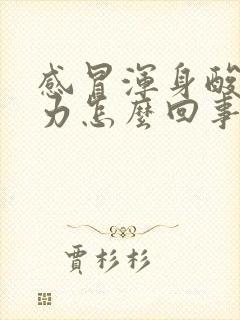 感冒渾身酸
力怎麼回事
賈杉杉